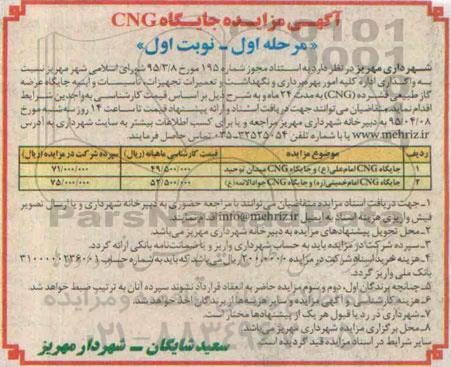 آگهی مزایده جایگاه CNG
«مرحله اول - نوبت اول»
شهرداری مهریز در نظر دارد به استناد مجوز شماره ۱۹۵ مورخ ۹۵/۳/۸ شورای اسلامی شهر مهریز نسبت
به واگذاری اداره کلیه امور بهره‌برداری و نگهداشت و تعمیرات تجهیزات، تاسیسات و ابنیه جایگاه عرضه
گاز طبیعی فشرده (CNG) به مدت ۲۴ ماه و به شرح ذیل بر اساس قیمت کارشناسی به واجدین شرایط
اقدام نماید. متقاضیان می‌توانند جهت دریافت اسناد و ارائه پیشنهاد قیمت تا ساعت ۱۴ روز سه‌شنبه مورخ
۹۵/۰۴/۰۸ به دبیرخانه شهرداری مهریز مراجعه و یا برای کسب اطلاعات بیشتر به سایت شهرداری به آدرس
www.mehriz.ir یا با شماره تلفن ۳۲۵۲۵۰۵۴-۰۳۵ تماس حاصل فرمایند.
ردیف موضوع مزایده قیمت کارشناسی ماهیانه (ریال) سپرده شرکت در مزایده (ریال)
۱ جایگاه CNG امام علی (ع) و جایگاه CNG میدان توحید ۴۹/۵۰۰/۰۰۰ ۷۱/۰۰۰/۰۰۰
۲ جایگاه CNG امام خمینی (ره) و جایگاه CNG جوادالائمه (ع) ۵۲/۵۰۰/۰۰۰ ۷۵/۰۰۰/۰۰۰
۱-جهت دریافت اسناد مزایده متقاضیان می‌توانند با مراجعه حضوری به دبیرخانه شهرداری و یا ارسال تصویر
فیش واریزی هزینه اسناد به ایمیل info@mehriz.ir اقدام نمایند.
۲-محل تحویل پیشنهادهای مزایده به دبیرخانه شهرداری مهریز می‌باشد.
۳-سپرده شرکت در مزایده باید به حساب شهرداری واریز و یا ضمانت‌نامه بانکی ارائه گردد.
۴-هزینه خرید اسناد شرکت در مزایده ۲۰۰/۰۰۰ ریال می‌باشد که باید به شماره حساب
بانک ملی واریز گردد.
۵-چنانچه برندگان اول، دوم و سوم مزایده حاضر به انعقاد قرارداد نشوند سپرده آنان به ترتیب ضبط خواهد شد.
۶-هزینه کارشناسی و آگهی مزایده و سایر هزینه‌ها از برندگان اخذ خواهد شد.
۷-شهرداری در رد یا قبول هر یک از پیشنهادها مختار است.
۸-محل برگزاری مزایده شهرداری مهریز می‌باشد.
سایر شرایط در اسناد مزایده قید گردیده است
سعید شایگان - شهردار مهریز